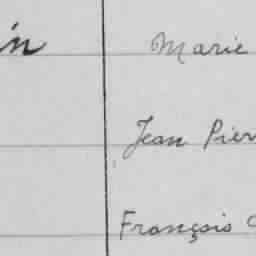 in Marie
Jean Pier
François